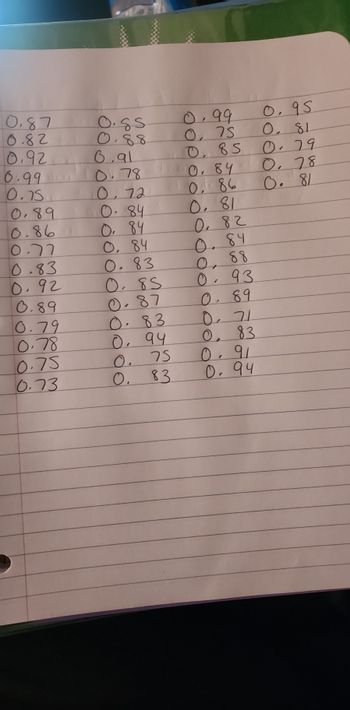 0.87 0.85 0.99 0.95
0.82 0.88 0.75 0.81
0.92 0.91 0.85 0.79
0.99 0.78 0.84 0.78
0.75 0.72 0.86 0.81
0.89 0.84 0.81
0.86 0.84 0.82
0.77 0.84 0.84
0.83 0.83 0.88
0.92 0.85 0.93
0.89 0.87 0.89
0.79 0.83 0.71
0.78 0.94 0.83
0.75 0.75 0.91
0.73 0.83 0.94